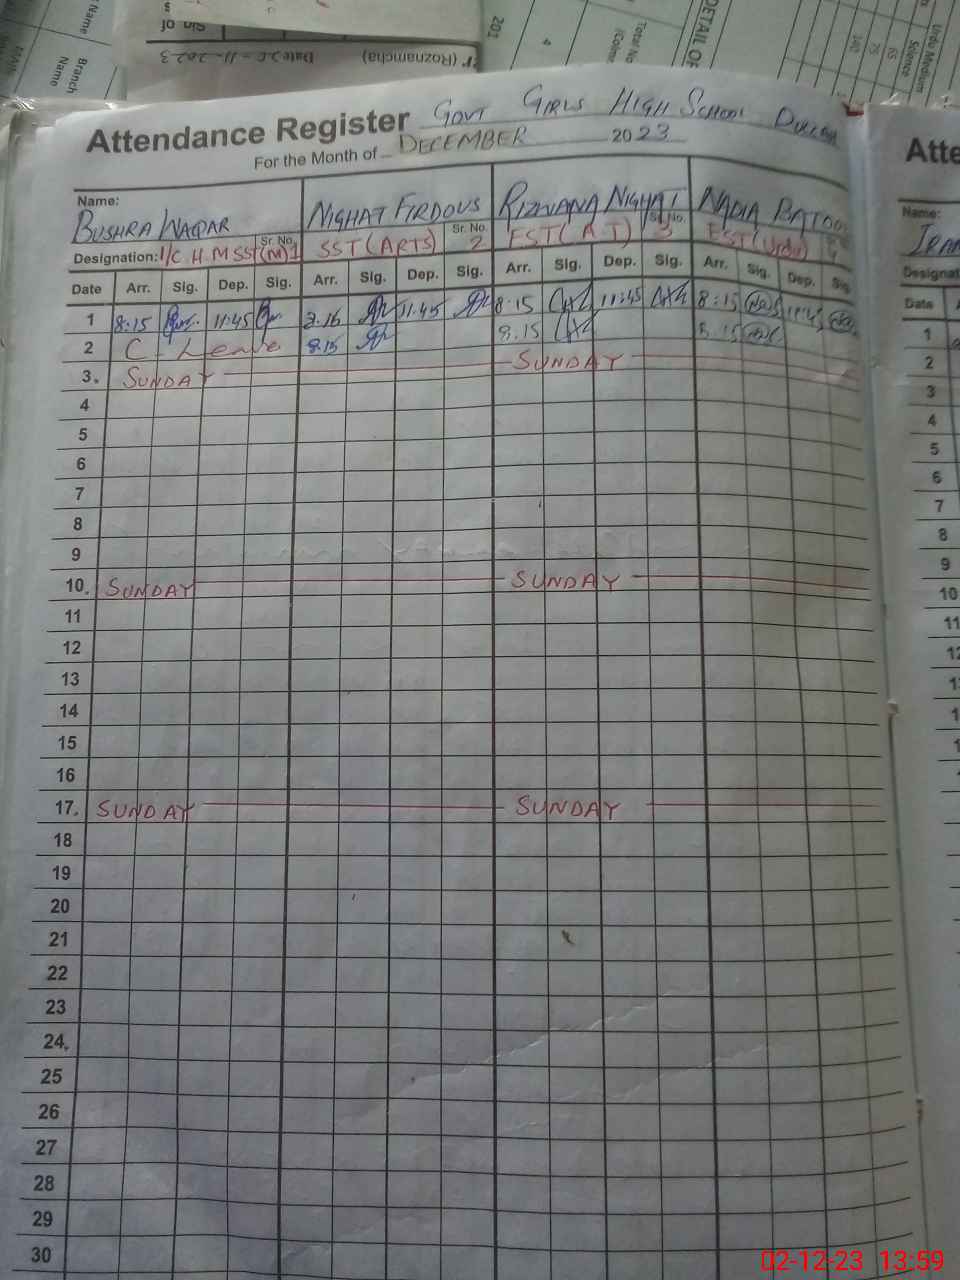 201
4
Total No
DETAIL OF
Urdu Medium
Science
65
75
140
Name
Branch
Name
Date 25-11-2023
(Roznamcha)
Attendance Register GOVT GIRLS HIGH SCHOOL
For the Month of DECEMBER 2023
Name: BUSHRA WAQAR NIGHAT FIRDOUS RIZWANA NIGHAT NADIA BATOOL
Designation: I/C H M SST(M) Sr. No. 1 SST (ARTS) Sr. No. 2 EST(A.T) Sr. No. 3 EST(Urdu) 4
Date Arr. Sig. Dep. Sig. Arr. Sig. Dep. Sig. Arr. Sig. Dep. Sig. Arr. Sig. Dep. Sig.
1 8:15 11:45 8.15 11:45 8:15 11:45 8:15 11:45
2 C - Leave 8:15 8.15 8.15
3. SUNDAY SUNDAY
4
5
6
7
8
9
10. SUNDAY SUNDAY
11
12
13
14
15
16
17. SUNDAY SUNDAY
18
19
20
21
22
23
24.
25
26
27
28
29
30
Atte
Name:
Designat
Date
1
2
3
4
5
6
7
8
9
10
11
02-12-23 13:59